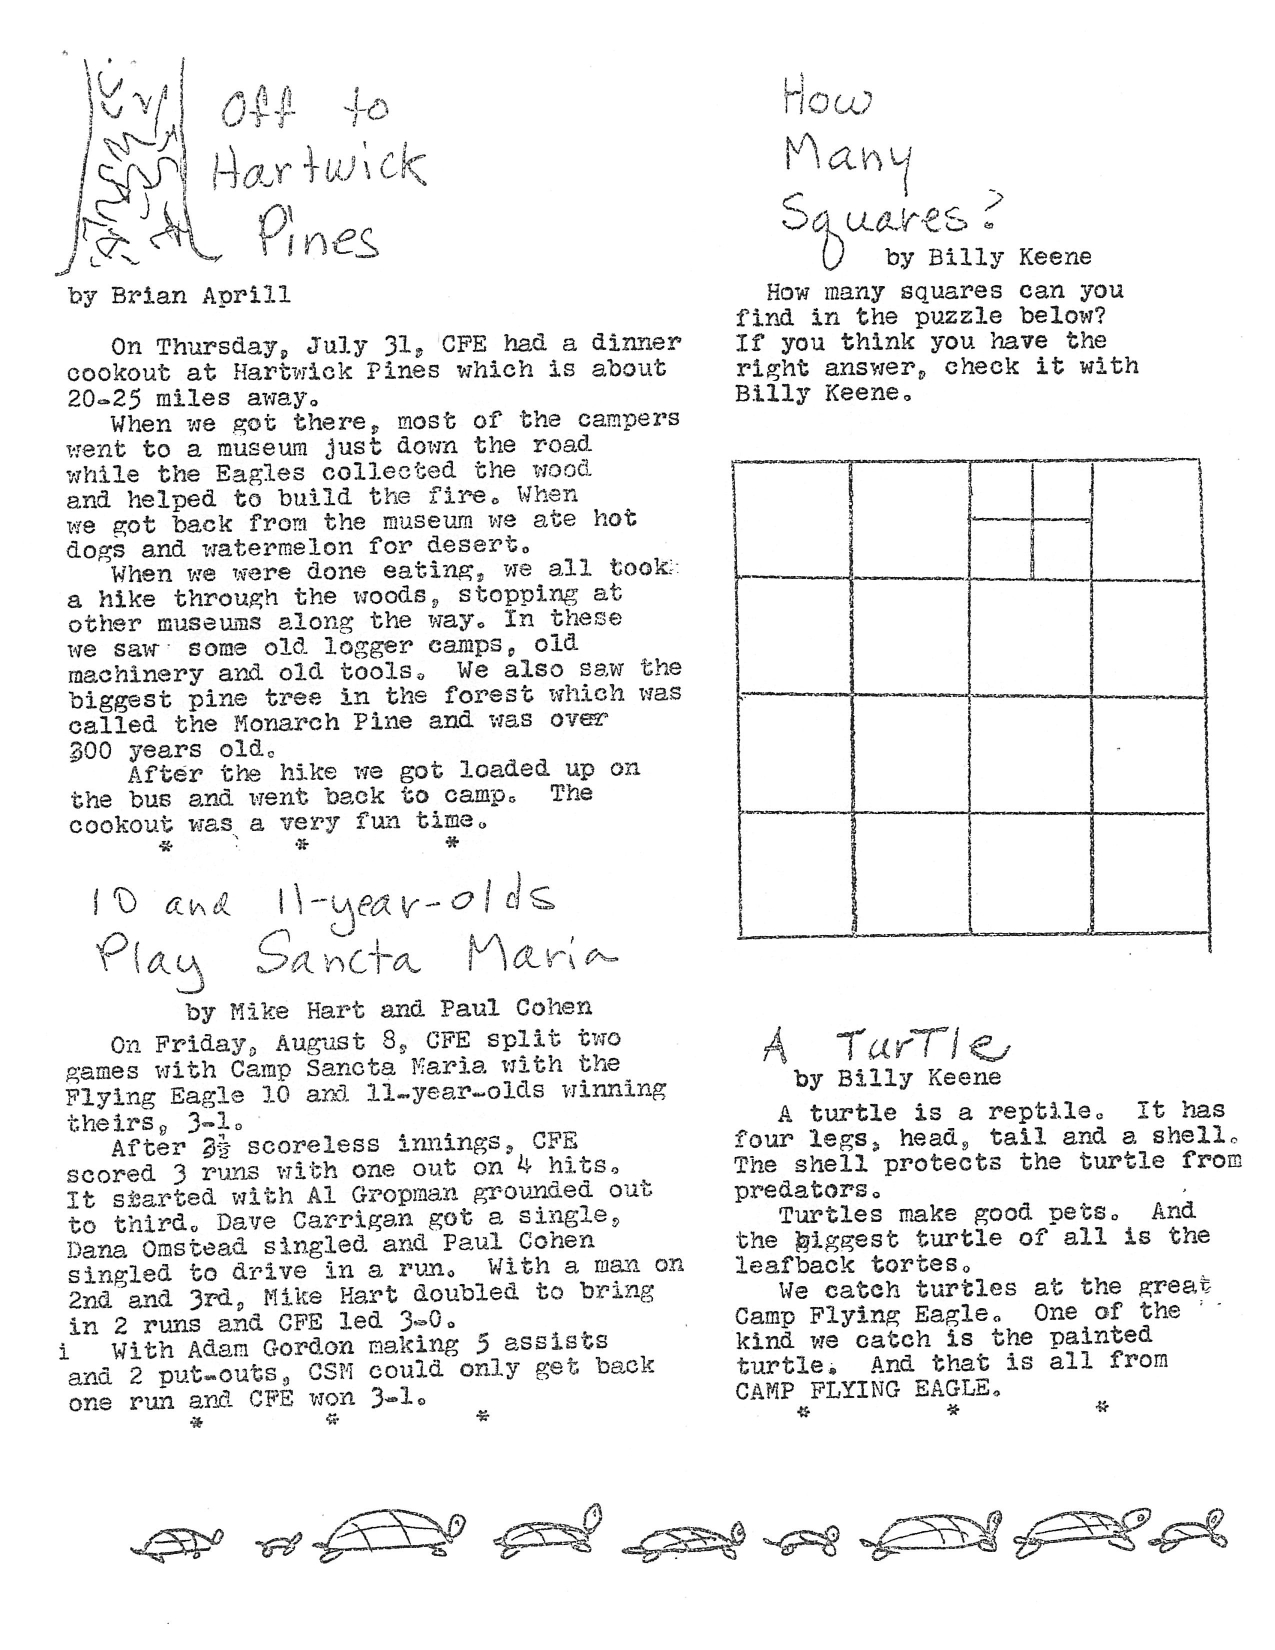 Off to
Hartwick
Pines
by Brian Aprill
On Thursday, July 31, CFE had a dinner
cookout at Hartwick Pines which is about
20-25 miles away.
When we got there, most of the campers
went to a museum just down the road
while the Eagles collected the wood
and helped to build the fire. When
we got back from the museum we ate hot
dogs and watermelon for desert.
When we were done eating, we all took
a hike through the woods, stopping at
other museums along the way. In these
we saw some old logger camps, old
machinery and old tools. We also saw the
biggest pine tree in the forest which was
called the Monarch Pine and was over
300 years old.
After the hike we got loaded up on
the bus and went back to camp. The
cookout was a very fun time.
* * *
10 and 11-year-olds
Play Sancta Maria
by Mike Hart and Paul Cohen
On Friday, August 8, CFE split two
games with Camp Sancta Maria with the
Flying Eagle 10 and 11-year-olds winning
theirs, 3-1.
After 3½ scoreless innings, CFE
scored 3 runs with one out on 4 hits.
It started with Al Gropman grounded out
to third. Dave Carrigan got a single,
Dana Omstead singled and Paul Cohen
singled to drive in a run. With a man on
2nd and 3rd, Mike Hart doubled to bring
in 2 runs and CFE led 3-0.
i With Adam Gordon making 5 assists
and 2 put-outs, CSM could only get back
one run and CFE won 3-1.
* * *
How
Many
Squares?
by Billy Keene
How many squares can you
find in the puzzle below?
If you think you have the
right answer, check it with
Billy Keene.
A Turtle
by Billy Keene
A turtle is a reptile. It has
four legs, head, tail and a shell.
The shell protects the turtle from
predators.
Turtles make good pets. And
the biggest turtle of all is the
leafback tortes.
We catch turtles at the great
Camp Flying Eagle. One of the
kind we catch is the painted
turtle. And that is all from
CAMP FLYING EAGLE.
* * *